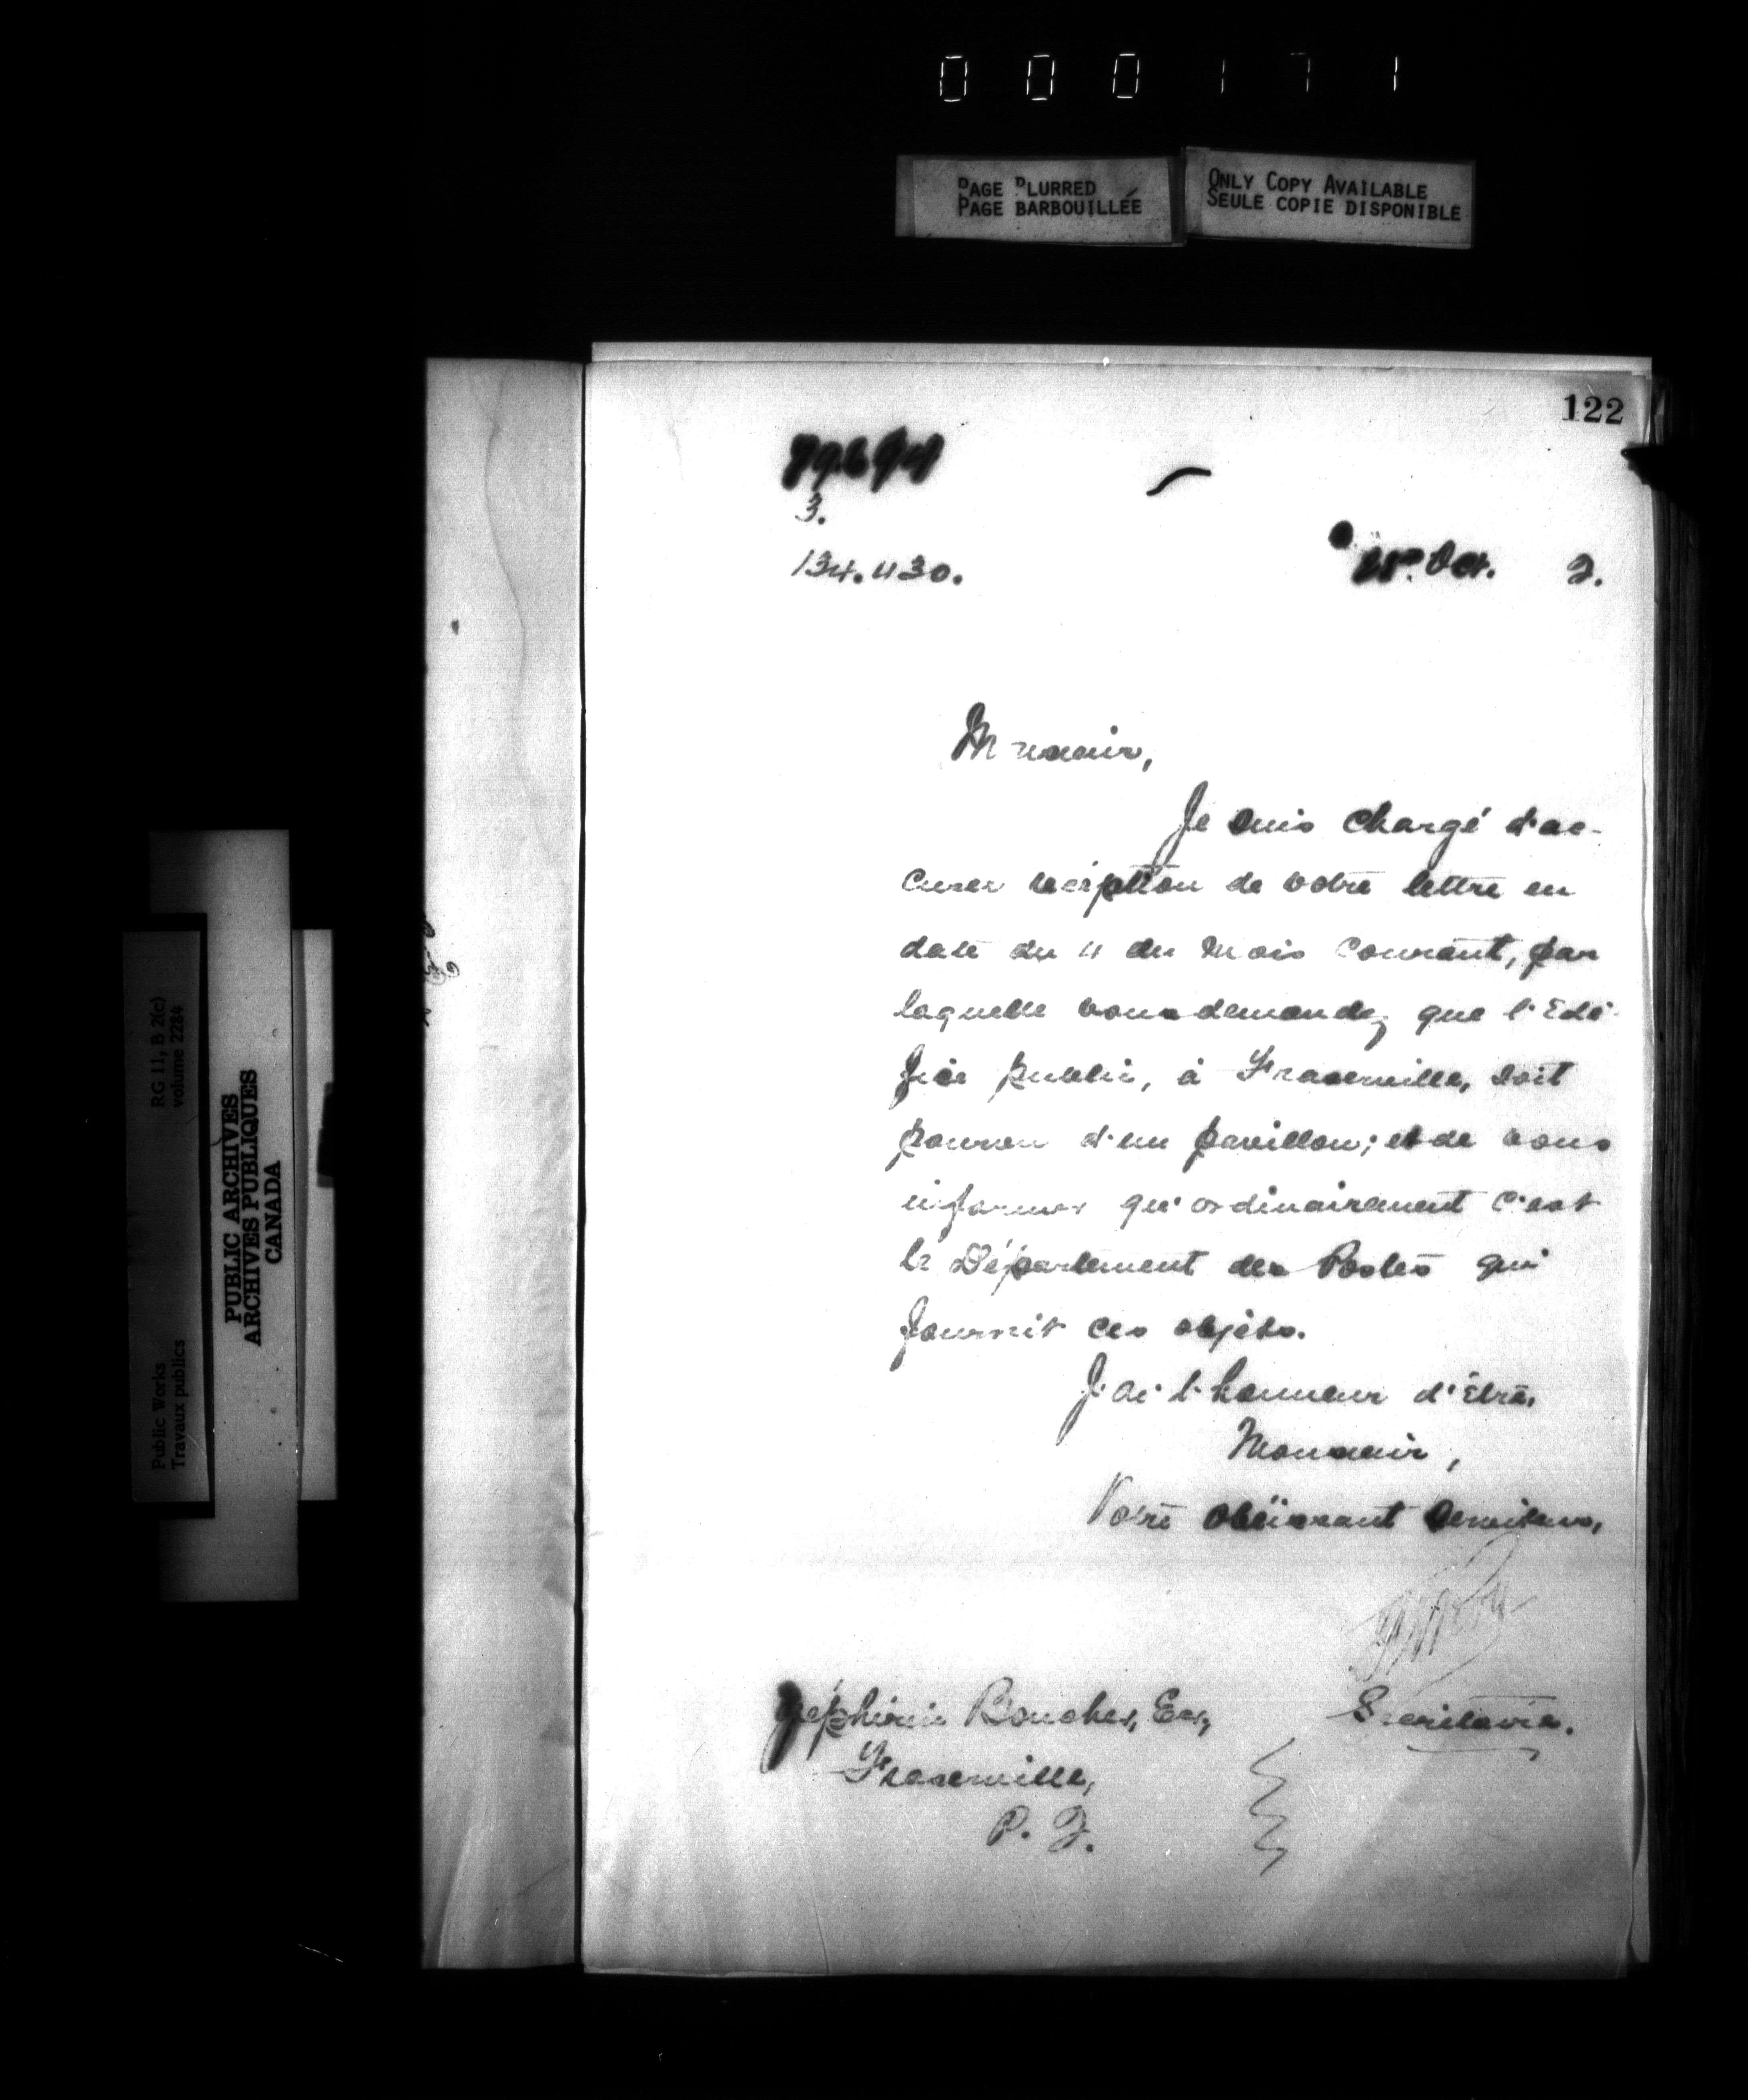 000171
PAGE BLURRED
PAGE BARBOUILLÉE
ONLY COPY AVAILABLE
SEULE COPIE DISPONIBLE
122
3.
134.430.
Oct. 2.
Monsieur,
Je suis chargé d'ac-
cuser réception de votre lettre en
date du 4 du mois courant, par
laquelle vous demandez que l'Edi-
fice public, à Fraserville, soit
pourvu d'un pavillon; et de vous
informer qu'ordinairement c'est
le Département des Postes qui
fournit ces objets.
J'ai l'honneur d'être,
Monsieur,
Votre obéissant serviteur,
Secrétaire.
Zéphirin Boucher, Esq,
Fraserville,
P. Q.
Public Works
Travaux publics
RG 11, B 2(c)
volume 2284
PUBLIC ARCHIVES
ARCHIVES PUBLIQUES
CANADA